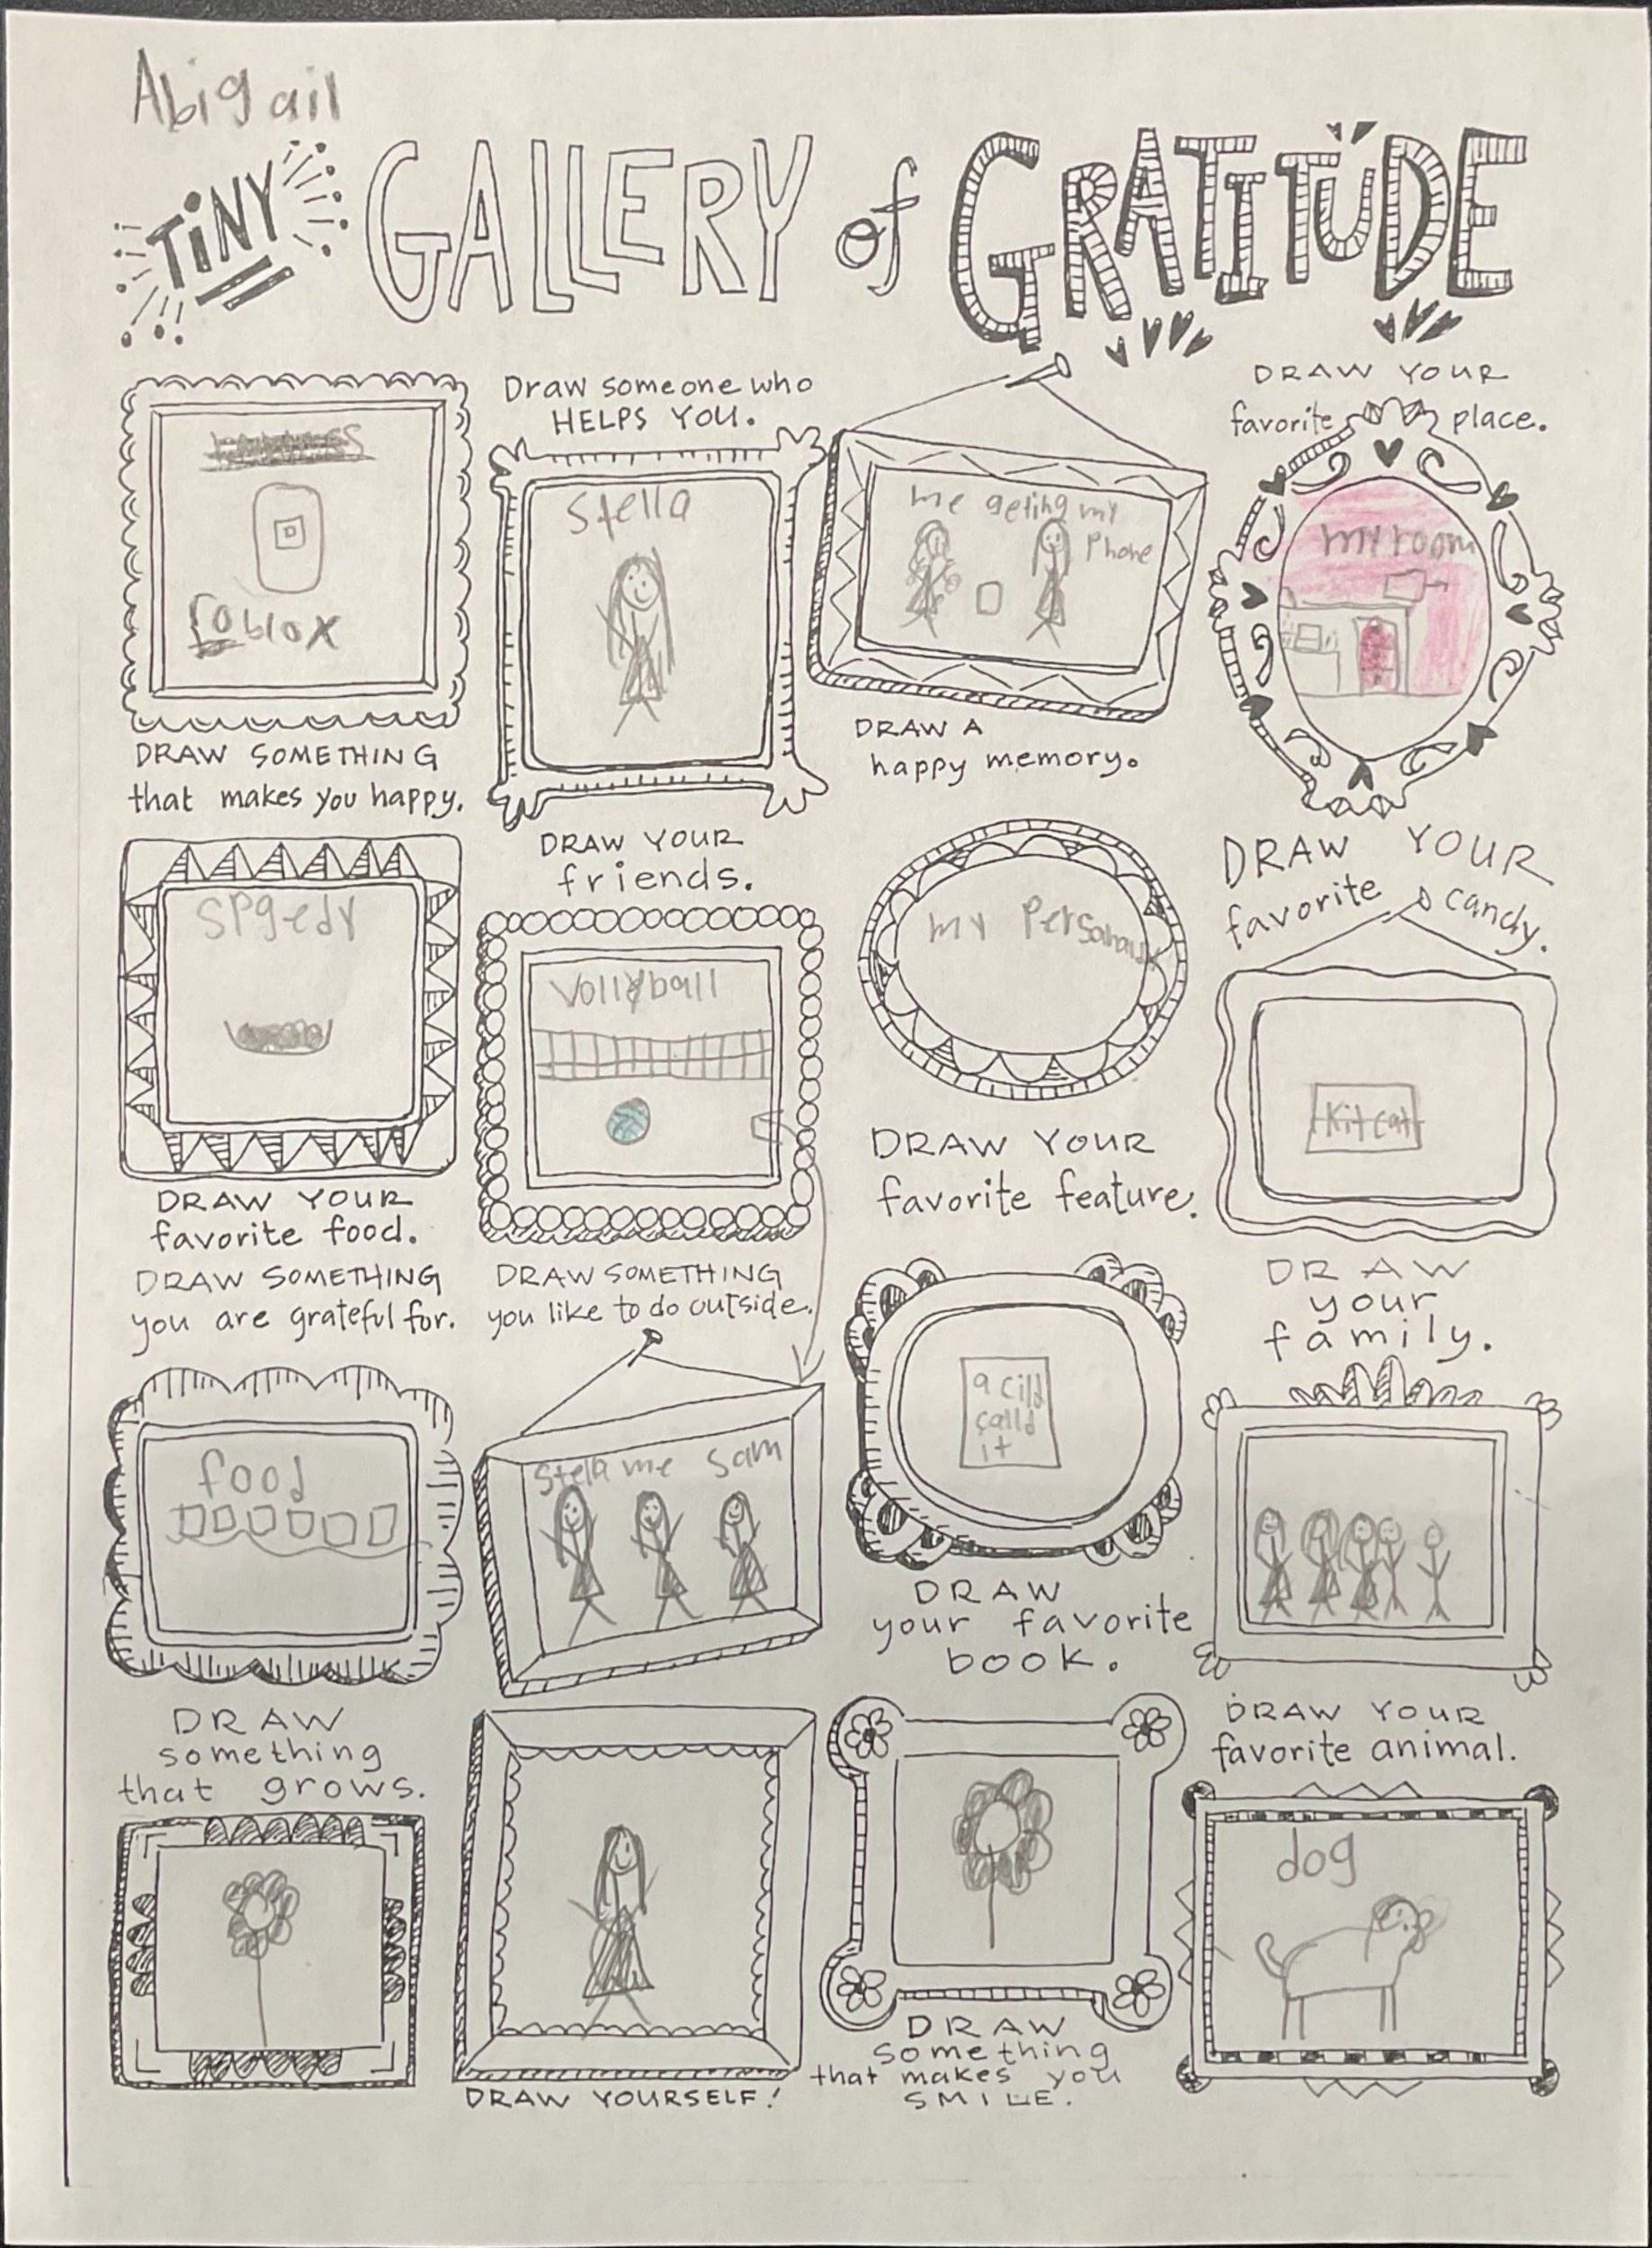 Abigail
TiNY GALLERY of GRATITUDE
roblox
DRAW SOMETHING
that makes you happy.
Draw someone who
HELPS YOU.
Stella
me geting my
Phone
DRAW A
happy memory.
DRAW YOUR
favorite place.
my room
Spgedy
DRAW YOUR
favorite food.
DRAW YOUR
friends.
Vollyball
my
DRAW YOUR
favorite feature.
DRAW YOUR
favorite candy.
Kitcat
DRAW SOMETHING
you are grateful for.
food
DRAW SOMETHING
you like to do outside.
Stella me Sam
a cild
calld
it
DRAW
your favorite
book.
DRAW
your
family.
DRAW
something
that grows.
DRAW YOURSELF!
DRAW
something
that makes you
SMILE.
DRAW YOUR
favorite animal.
dog